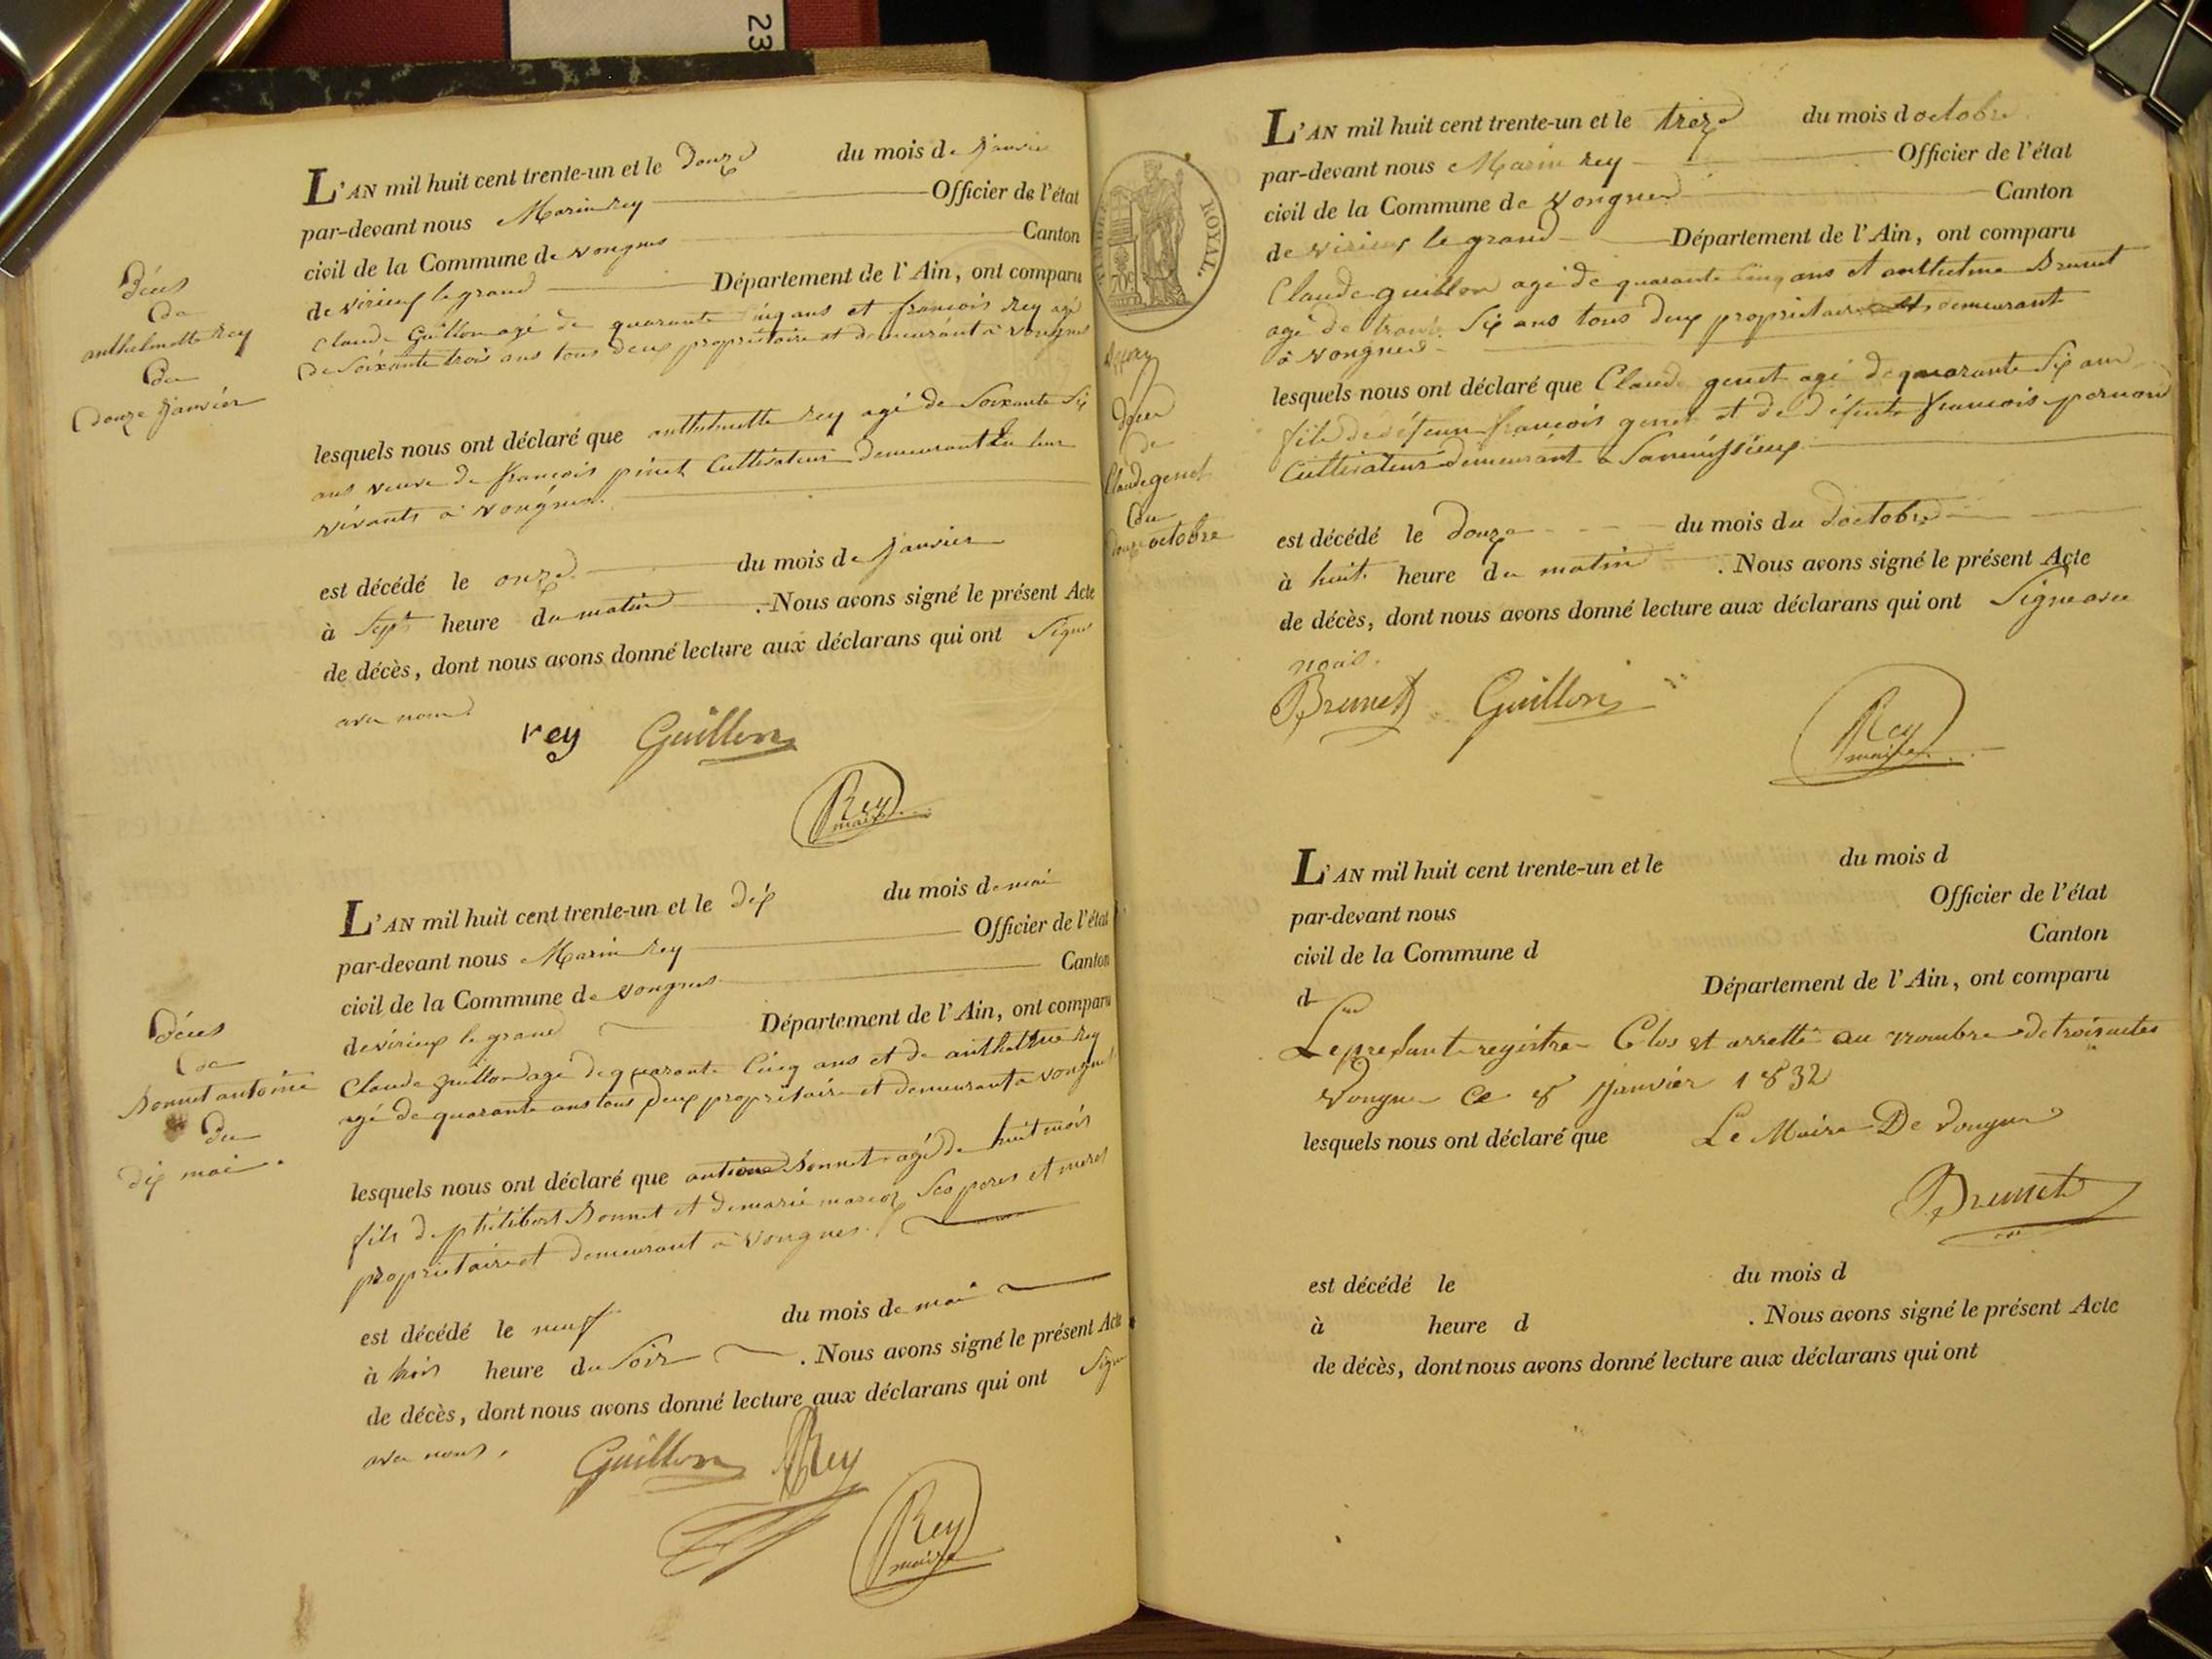 23
L'AN mil huit cent trente-un et le douze du mois de janvier
par-devant nous Marin rey Officier de l'état
civil de la Commune de vongnes Canton
de virieux le grand Département de l'Ain, ont comparu
Claude Guillon agé de quarante cinq ans et francois Rey agé
de soixante trois ans tous deux propriétaire et demeurant à vongnes
décès
de
anthelmette Rey
du
douze janvier
lesquels nous ont déclaré que anthelmette rey agé de soixante six
ans veuve de francois pinet Cultivateur demeurant de leur
vivants à vongnes.
est décédé le onze du mois de janvier
à sept heure du matin . Nous avons signé le présent Acte
de décès, dont nous avons donné lecture aux déclarans qui ont signé
avec nous
rey Guillon
Rey
maire
L'AN mil huit cent trente-un et le dix du mois de mai
par-devant nous Marin Rey Officier de l'état
civil de la Commune de vongnes Canton
de virieux le grand Département de l'Ain, ont comparu
Claude guillon agé de quarante cinq ans et de anthelme Rey
agé de quarante ans tous deux propriétaire et demeurant a vongnes
décès
de
Bonnet antoine
du
dix mai.
lesquels nous ont déclaré que antoine Bonnet agé de huit mois
fils de philibert Bonnet et de marie marcoz ses peres et meres
proprietaire et demeurant à vongnes.
est décédé le neuf du mois de mai
à trois heure du soir . Nous avons signé le présent Acte
de décès, dont nous avons donné lecture aux déclarans qui ont signé
avec nous.
Guillon Rey
Rey
maire
TIMBRE ROYAL.
L'AN mil huit cent trente-un et le treze du mois d octobre
par-devant nous Marin rey Officier de l'état
civil de la Commune de vongnes Canton
de virieux le grand Département de l'Ain, ont comparu
Claude guillon agé de quarante cinq ans et anthelme Brunet
agé de trente six ans tous deux proprietaire et demeurant
à vongnes
décès
de
Claude genet
du
douze octobre
lesquels nous ont déclaré que Claude genet agé de quarante six ans
fils de défunt francois genet et de défunte francoise pernon
Cultivateur demeurant a
est décédé le douze du mois du doctobre
à huit heure du matin . Nous avons signé le présent Acte
de décès, dont nous avons donné lecture aux déclarans qui ont signé avec
nous.
Brunet Guillon
Rey
maire
L'AN mil huit cent trente-un et le du mois d
par-devant nous Officier de l'état
civil de la Commune d Canton
d Département de l'Ain, ont comparu
Le presente registre Clos et arretté au nombre de trois actes
Vongne Ce 8 janvier 1832
lesquels nous ont déclaré que Le Maire De Vongne
Brunet
est décédé le du mois d
à heure d . Nous avons signé le présent Acte
de décès, dont nous avons donné lecture aux déclarans qui ont